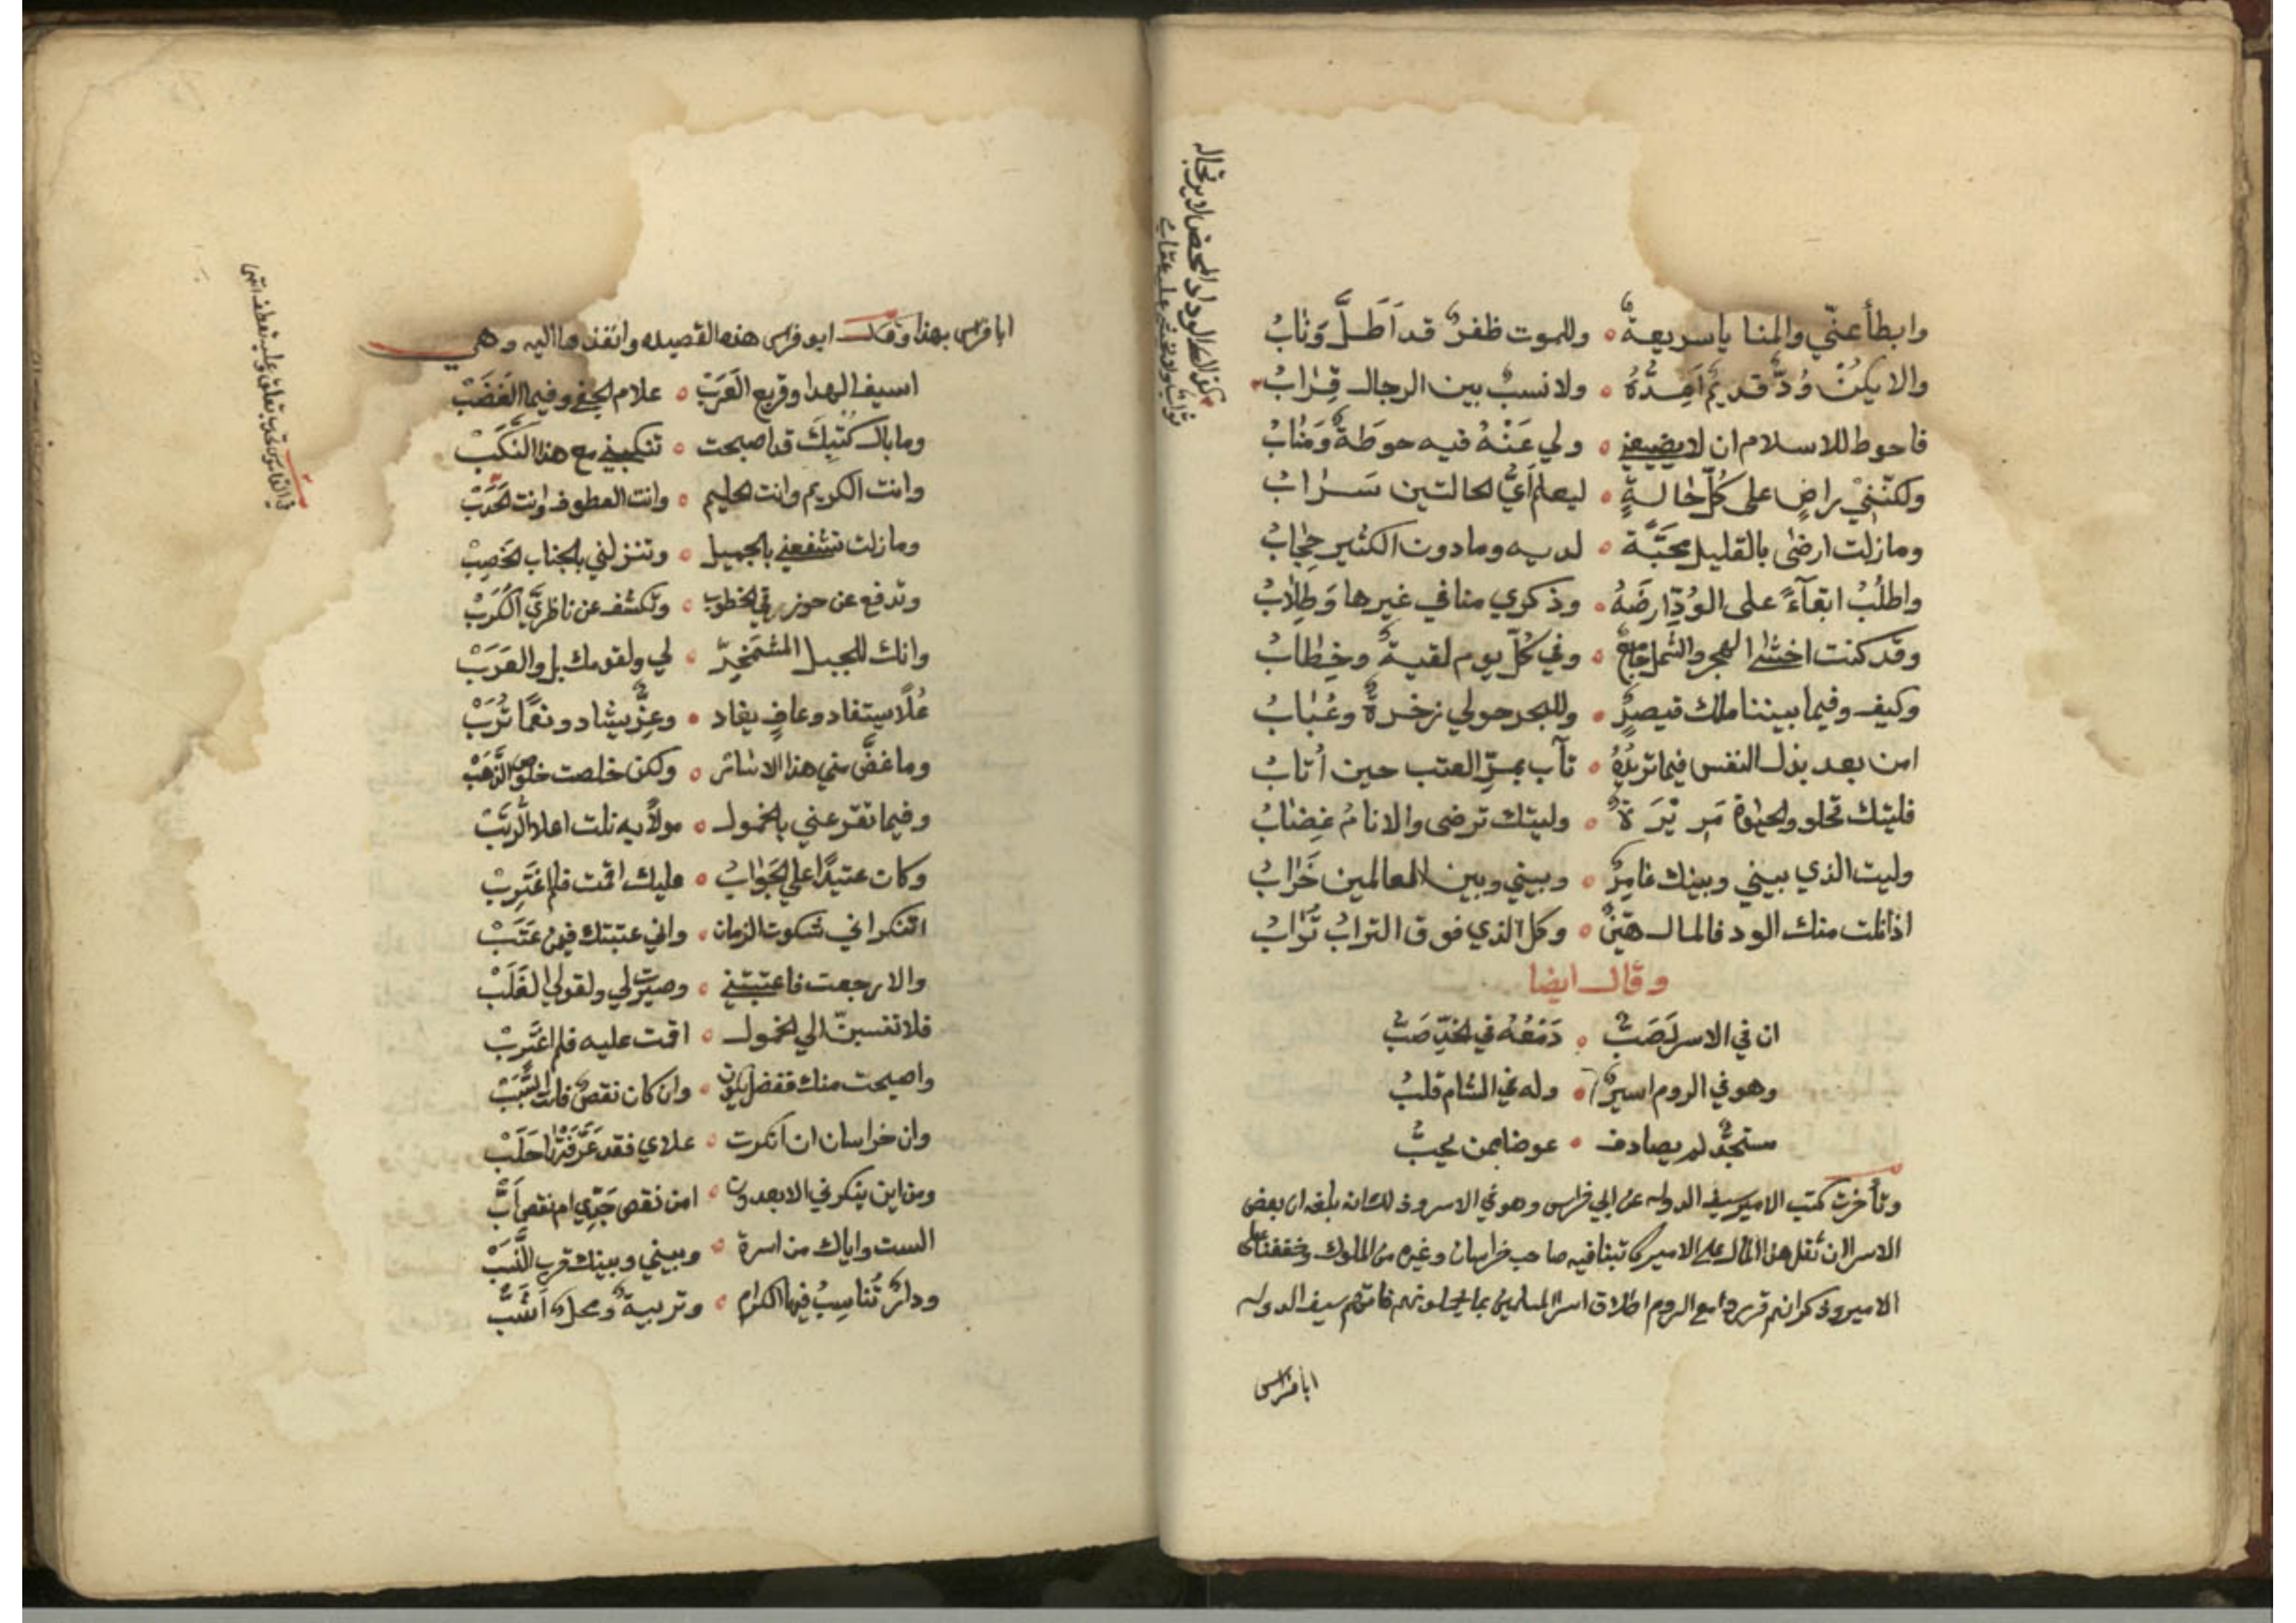 وابطأ عنّي والمنايا سريعةٌ ۰ وللموت ظفرٌ قد اَطَلَّ وَنابُ
والا يكنْ وُدٌّ قديم اَعِدُّهُ ۰ ولا نسبٌ بين الرجال قِرابُ
فاحوط للاسلام ان لا يضيعني ۰ ولي عَنْهُ فيه حوطَةٌ وَمنابُ
ولكنّني راضٍ على كُلِّ حالةٍ ۰ ليعلم أيُّ الحالتين سَرابُ
وما زلت ارضى بالقليل محبَّة ۰ لديه وما دون الكثير حِجابُ
واطلُبُ ابقآءً على الوُدِّ ارضَهُ ۰ وذكري منا في غيرها وَطِلابُ
وقد كنت اخشى الهجر والشمل جامع ۰ وفي كُلِّ يوم لقيةٌ وخِطابُ
وكيف وفيما بيننا ملك قيصرٍ ۰ وللبحر حولي زخرةٌ وعُبابُ
امن بعد بذل النفس فيما تريدُهُ ۰ تآب بمرِّ العتب حين اُتابُ
فليتك تحلو والحيوة مَرِيْرَةٌ ۰ وليتك ترضى والانامُ غِضابُ
وليت الذي بيني وبينك عامِرٌ ۰ وبيني وبين العالمين خَرابُ
اذا نلت منك الود فالمال هيّنٌ ۰ وكل الذي فوق الترابُ تُرابُ
وقال ايضا
ان في الاسر لَصَبٌّ ۰ دَمْعُهُ في الخدِّ صَبُّ
وهو في الروم اسيرٌ ۰ وله في الشام قلبُ
مستجدٌّ لم يصادف ۰ عوضا ممن يحبُّ
وتأخرت كتب الامير سيف الدوله عن ابي فراس وهو في الاسر وذلك انه بلغه ان بعض
الاسرا ان ثقل هذا المال على الامير كاتبنا فيه صاحب خراسان وغيره من الملوك وخففنا على
الامير وذكر انهم قرروا مع الروم اطلاق اسرا المسلمين بما يحملونهم فاتهم سيف الدوله
ابا فراس
بكف الوداد المحض لا يرتجا له
ثواب ولا يخشى عليه عقاب
ابا فراس بهذا وقال ابو فراس هذه القصيده وانفذها اليه وهي
اسيف الهدا وقريع العَرَبْ ۰ علام الجفى وفيما الغَضَبْ
وما بال كُتْبِكَ قد اصبحت ۰ تنكبني مع هذا النَّكَبْ
وانت الكريم وانت الحليم ۰ وانت العطوف وانت الحَدَبْ
وما زلت تشفعني بالجميل ۰ وتنزلني بالجناب الخَصِبْ
وتدفع عن حوزتي الخطوب ۰ وتكشف عن ناظريَّ الكُرَبْ
وانك للجبل المشمَخِرّ ۰ لي ولقومك بل والعَرَبْ
عُلًا يستفاد وعافٍ يفاد ۰ وعِزٌّ يشاد ونعمًا تُرَبْ
وما غضَّ مني هذا الاسار ۰ ولكن خلصت خلوص الذَّهَبْ
وفيما تقرعني بالخمول ۰ مولًا به نلت اعلا الرُّتَبْ
وكان عتيدًا علي الجَوابُ ۰ عليك اقمت فلم اغتَرِبْ
اتنكر اني شكوت الزمان ۰ واني عتبتك فيمن عَتَبْ
والا رجعت فاعتبتني ۰ وصيرت لي ولقولي الغَلَبْ
فلا تنسبنّ الي الخمول ۰ اقمت عليه فلم اغتَرِبْ
واصبحت منك ففضل يكون ۰ وان كان نقصٌ فانت السَّبَبْ
وان خراسان ان انكرت ۰ علاي فقد عَرَّفَتْنا حَلَبْ
ومن اين ينكرني الابعدون ۰ امن نقص جَدِّي ام نقص اَبْ
الست واياك من اسرة ۰ وبيني وبينك قرب النَّسَبْ
ودارٌ تُناسِبُ فيها الكرام ۰ وتربيةٌ ومحلٌ اَشَبْ